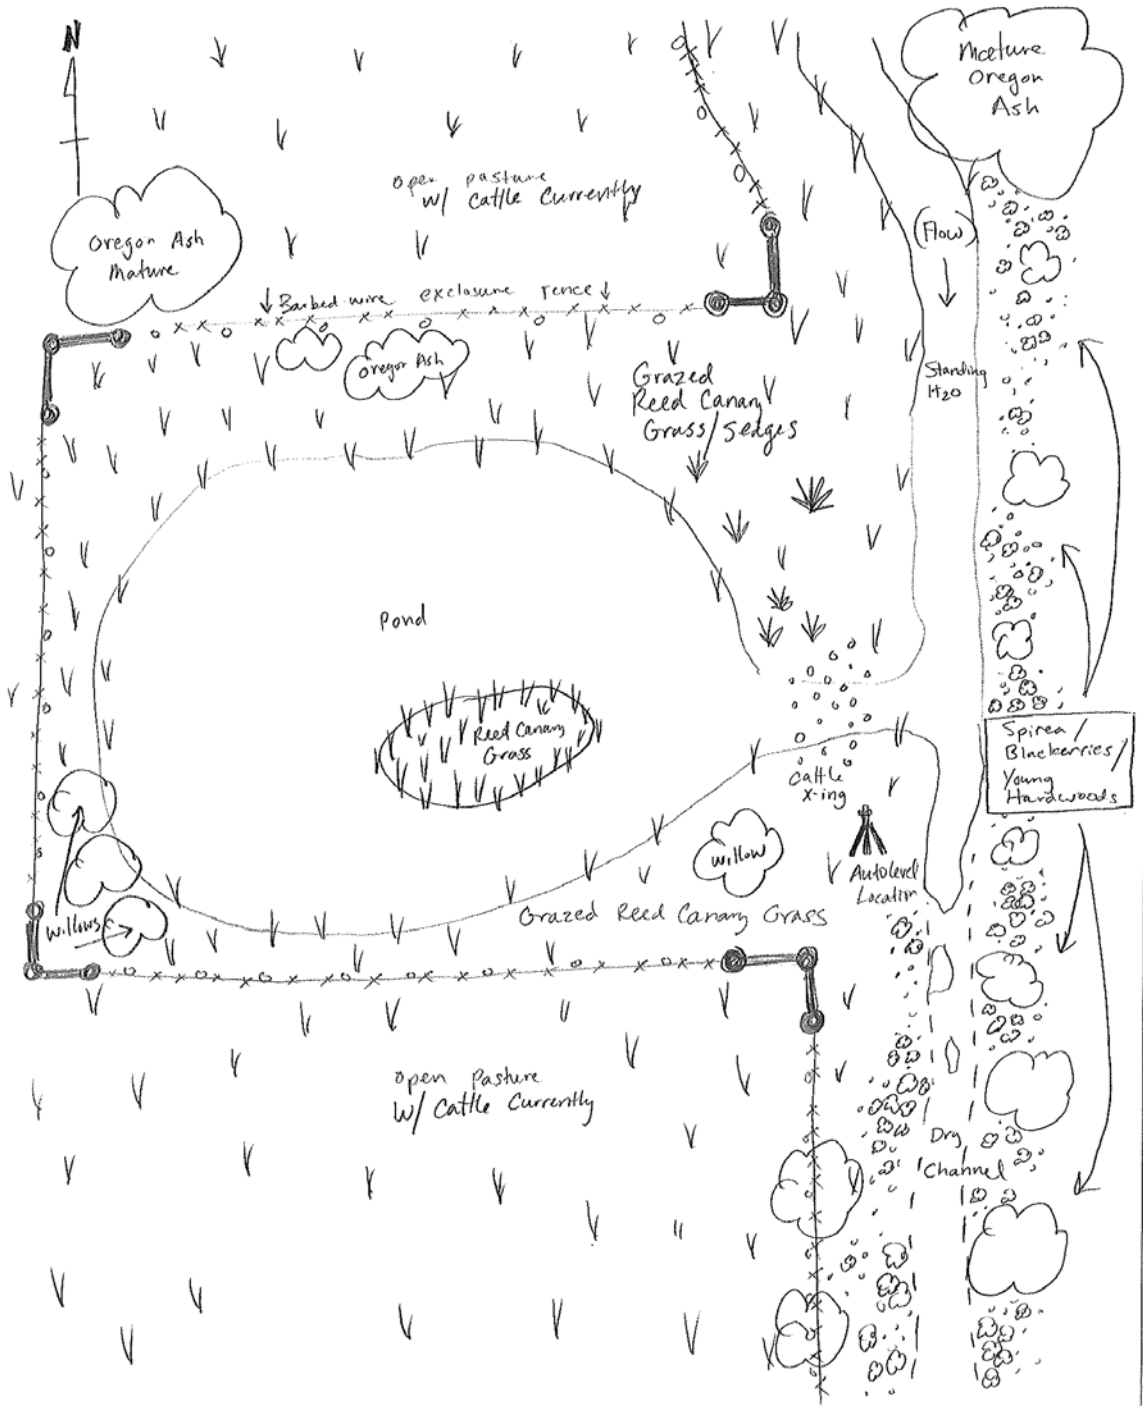 N
Mature
Oregon
Ash
open pasture
w/ Cattle Currently
Oregon Ash
Mature
(Flow)
Barbed-wire exclosure fence
Oregon Ash
Grazed
Reed Canary
Grass/Seages
Standing
H2O
Pond
Reed Canary
Grass
Spirea/
Blackerries/
Young
Hardwoods
Cattle
X-ing
Willow
Autolevel
Location
Willows
Grazed Reed Canary Grass
open Pasture
W/ Cattle Currently
Dry
Channel